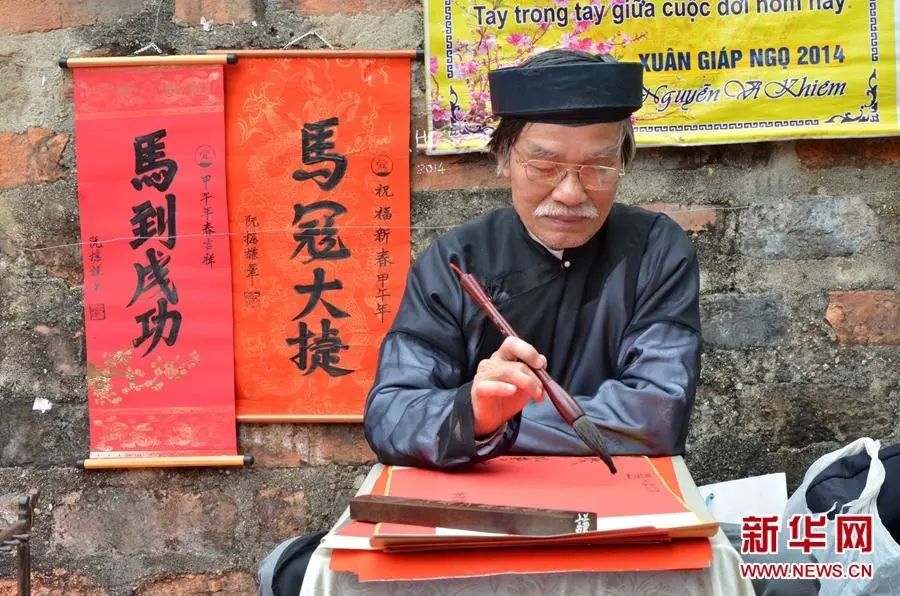 Tay trong tay giữa cuộc đời hôm nay
XUÂN GIÁP NGỌ 2014
Nguyễn Vi Khiêm
馬到成功
甲午年春吉祥
馬冠大捷
祝福新春甲午年
新华网
WWW.NEWS.CN